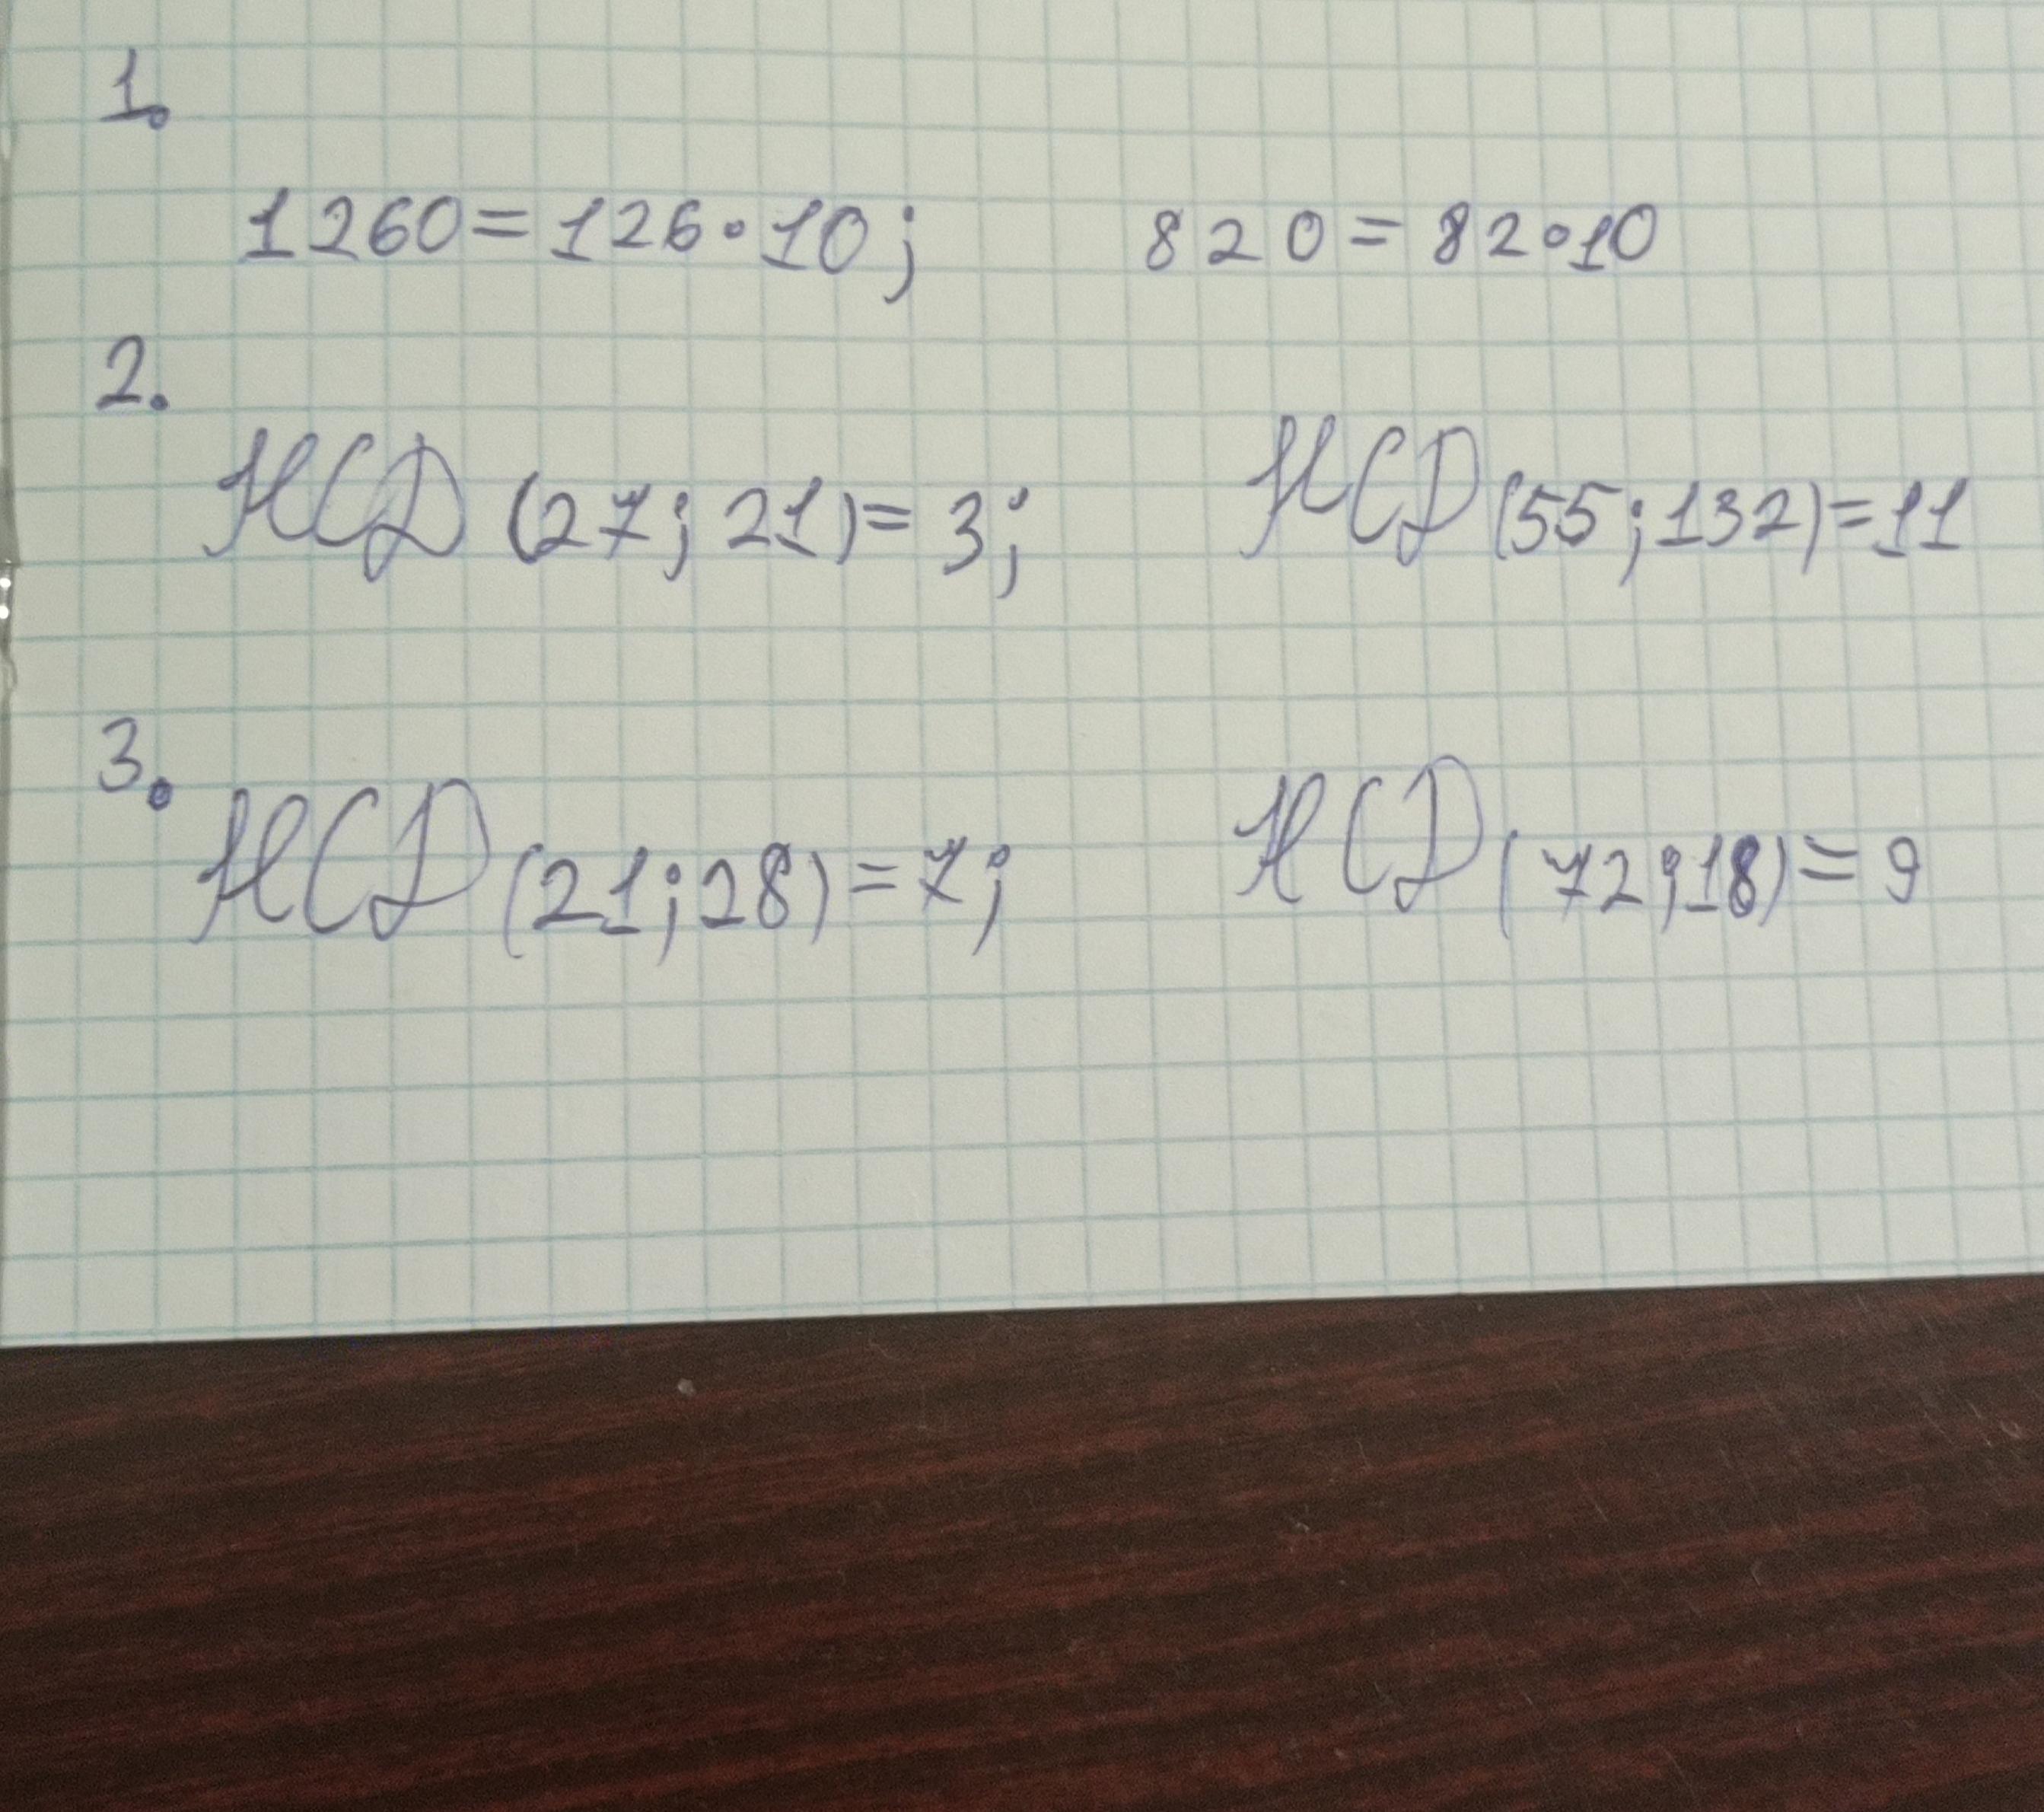 1.
1260=126•10; 820=82•10
2.
НСD (27; 21)=3; НСD (55;132)=11
3.
НСD (21;28)=7; НСD (72;18)=9